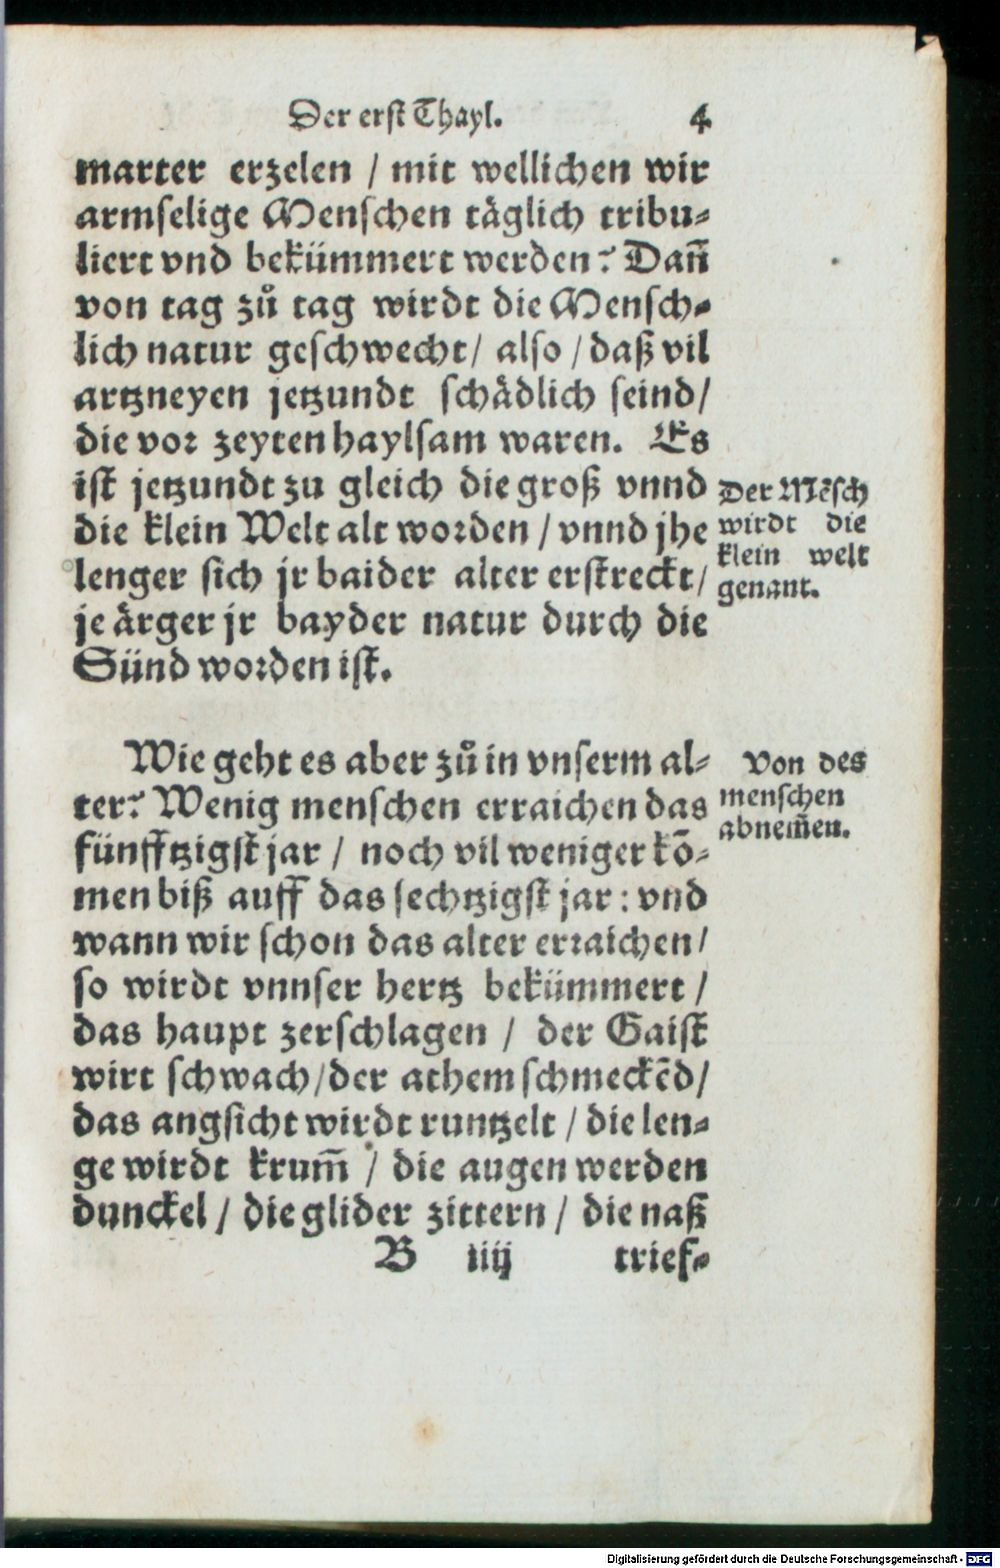 Der erst Thayl. 4
marter erzelen / mit wellichen wir
armselige Menschen täglich tribu⸗
liert vnd bekümmert werden? Dañ
von tag zů tag wirdt die Mensch⸗
lich natur geschwecht / also / daß vil
artzneyen jetzundt schädlich seind /
die vor zeyten haylsam waren. Es
ist jetzundt zu gleich die groß vnnd
die klein Welt alt worden / vnnd jhe
lenger sich jr baider alter erstreckt /
je ärger jr bayder natur durch die
Sünd worden ist.
Der Mẽsch
wirdt die
klein welt
genant.
Wie geht es aber zů in vnserm al⸗
ter? Wenig menschen erraichen das
fünfftzigst jar / noch vil weniger kõ⸗
men biß auff das sechtzigst jar : vnd
wann wir schon das alter erraichen /
so wirdt vnnser hertz bekümmert /
das haupt zerschlagen / der Gaist
wirt schwach / der athem schmeckẽd /
das angsicht wirdt runtzelt / die len⸗
ge wirdt krum̃ / die augen werden
dunckel / die glider zittern / die naß
Von des
menschen
abnem̃en.
B iiij trief⸗
Digitalisierung gefördert durch die Deutsche Forschungsgemeinschaft - DFG